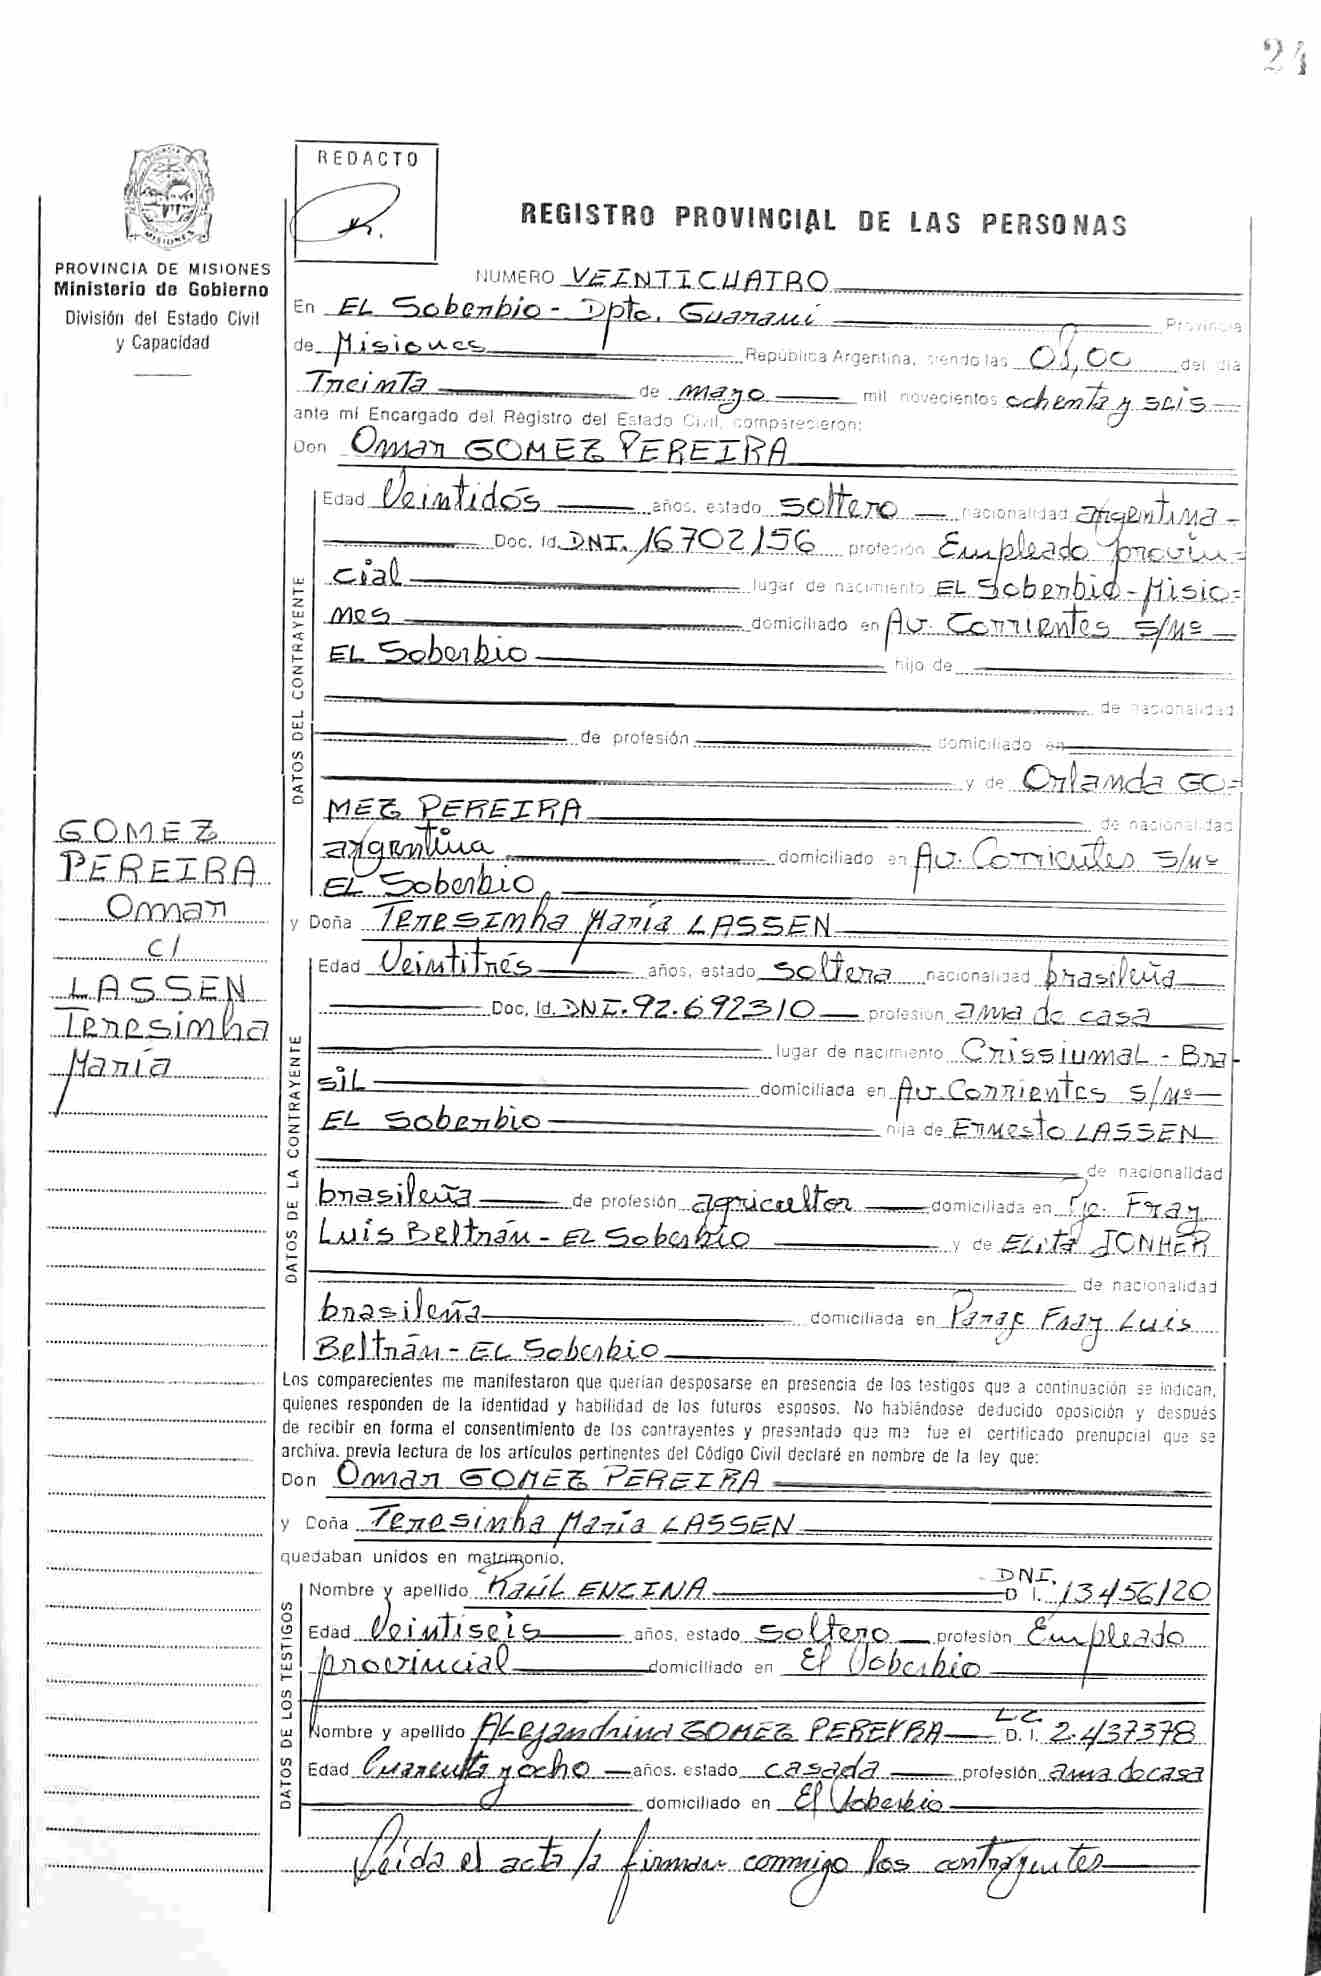 24
REDACTO
REGISTRO PROVINCIAL DE LAS PERSONAS
PROVINCIA DE MISIONES
Ministerio de Gobierno
División del Estado Civil
y Capacidad
NUMERO VEINTICUATRO
En EL Soberbio - Dpto. Guaraní Provincia
de Misiones República Argentina, siendo las 08,00 del día
Treinta de mayo mil novecientos ochenta y seis
ante mí Encargado del Registro del Estado Civil, comparecieron:
Don Omar GOMEZ PEREIRA
Edad Veintidós años, estado soltero nacionalidad argentina
Doc. Id. DNI. 16702156 profesión Empleado provin=
cial lugar de nacimiento EL Soberbio - Misio=
nes domiciliado en Av. Corrientes s/nº
EL Soberbio hijo de
de nacionalidad
de profesión domiciliado en
y de Orlanda GO=
MEZ PEREIRA de nacionalidad
argentina domiciliado en Av. Corrientes s/nº
EL Soberbio
DATOS DEL CONTRAYENTE
GOMEZ
PEREIRA
Omar
c/
LASSEN
Teresinha
María
y Doña Teresinha María LASSEN
Edad Veintitrés años, estado soltera nacionalidad brasileña
Doc. Id. DNI. 92.692310 profesión ama de casa
lugar de nacimiento Crissiumal - Bra
sil domiciliada en Av. Corrientes s/nº
EL Soberbio hija de Ernesto LASSEN
de nacionalidad
brasileña de profesión agricultor domiciliada en Pje. Fray
Luis Beltrán - EL Soberbio y de ELita JONHER
de nacionalidad
brasileña domiciliada en Paraje Fray Luis
Beltrán - EL Soberbio
DATOS DE LA CONTRAYENTE
Los comparecientes me manifestaron que querían desposarse en presencia de los testigos que a continuación se indican,
quienes responden de la identidad y habilidad de los futuros esposos. No habiéndose deducido oposición y después
de recibir en forma el consentimiento de los contrayentes y presentado que me fue el certificado prenupcial que se
archiva. previa lectura de los artículos pertinentes del Código Civil declaré en nombre de la ley que:
Don Omar GOMEZ PEREIRA
y Doña Teresinha María LASSEN
quedaban unidos en matrimonio.
Nombre y apellido Raúl ENCINA DNI. D I. 13456120
Edad Veintiseis años, estado soltero profesión Empleado
provincial domiciliado en El Soberbio
Nombre y apellido ALejandrina GOMEZ PEREYRA LC D. I. 2.437378
Edad Cuarenta y ocho años, estado casada profesión ama de casa
domiciliado en El Soberbio
DATOS DE LOS TESTIGOS
Leída el acta la firman conmigo los contrayentes